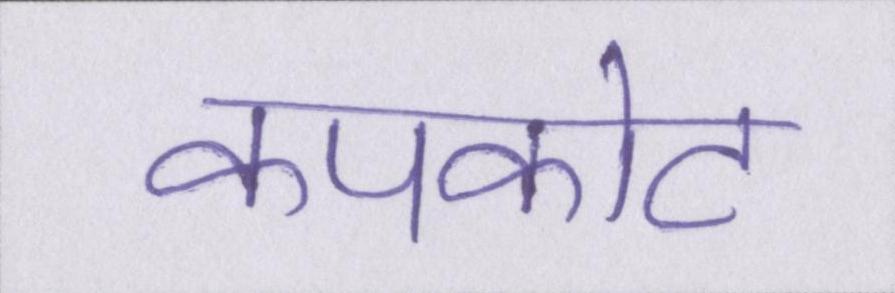 कपकोट